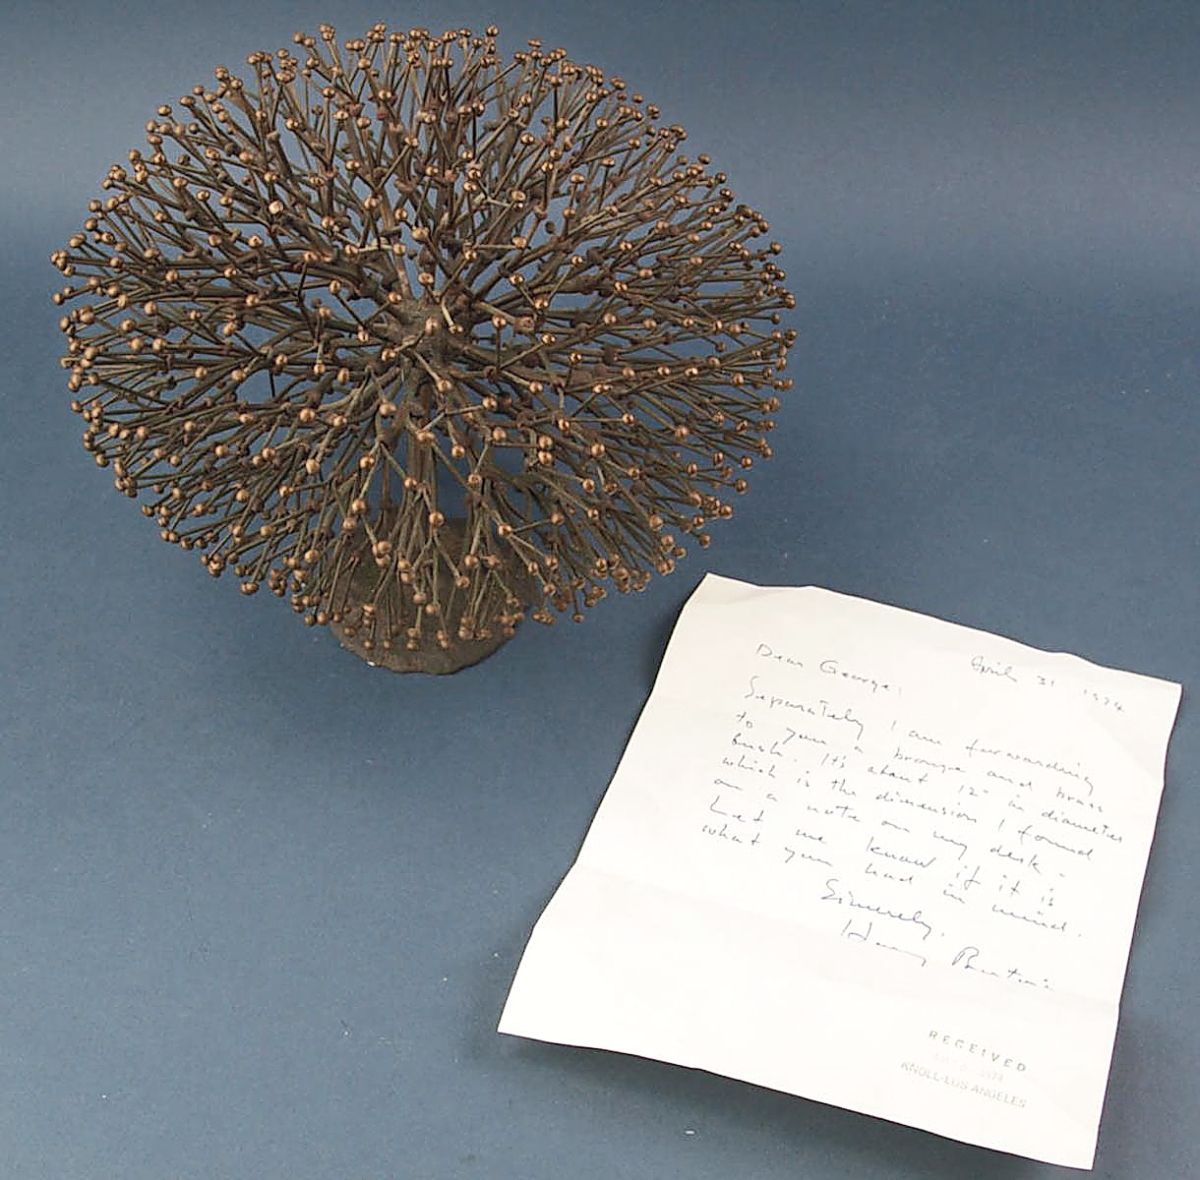 April 31 1974
Dear George,
Separately I am forwarding
to you a bronze and brass
Bush. It's about 12" in diameter
which is the dimension I found
on a note on my desk -
Let me know if it is
what you had in mind.
Sincerely,
Harry Bertoia
RECEIVED
1974
KNOLL-LOS ANGELES